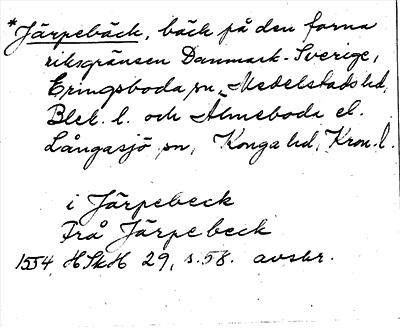 *Järpebäck, bäck på den forna
riksgränsen Danmark-Sverige,
Eringsboda sn, Medelstads hd,
Blek. l. och Älmeboda el.
Långasjö sn, Konga hd, Kron. l.
i Järpebeck
Frå Järpebeck
1554, HSkH 29, s. 58. avskr.